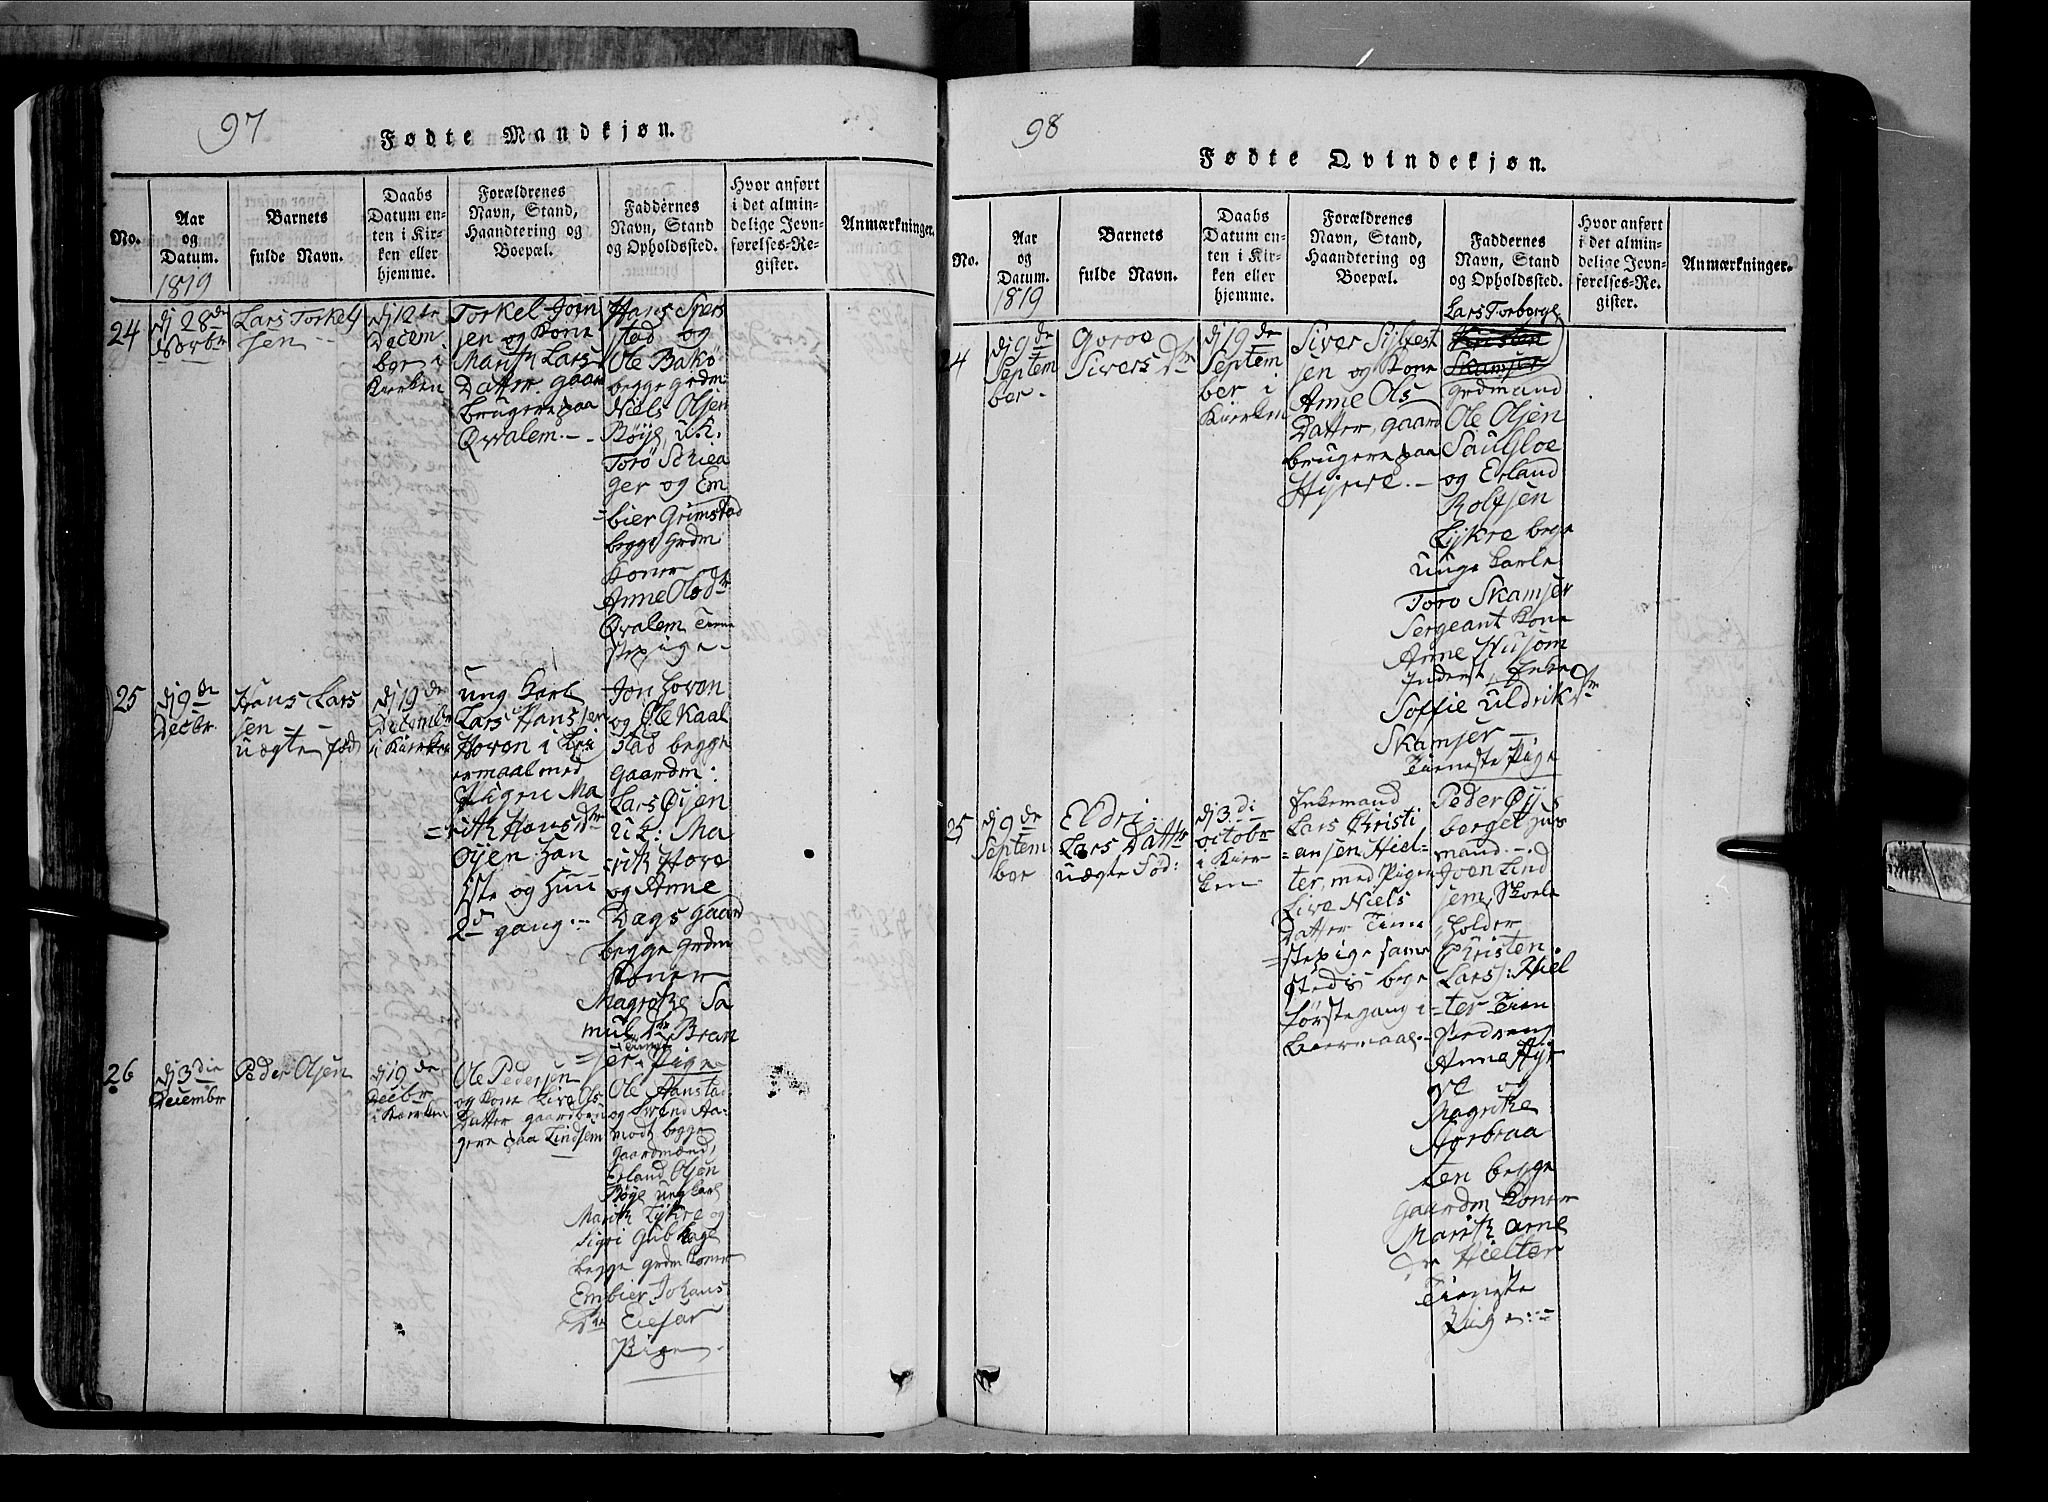 97
Fødte Mandkjøn.
No.
Aar
og
Datum.
1819
Barnets
fulde Navn.
Daabs
Datum en-
ten i Kir-
ken eller
hjemme.
Forældrenes
Navn, Stand,
Haandtering og
Boepæl.
Faddernes
Navn, Stand
og Opholdssted.
Hvor anført
i det almin-
delige Jevn-
førelses-Re-
gister.
Anmærkninger.
24
dj 28de
Novbr
Lars Torkels
sen
dj 12te
Decem
ber i
Kierken
Torkel Joen
sen og Kone
Marith Lars
Datter gaar
brugere paa
Qvalem
Hans Spers
stad og
Ole Bakø
begge grdm
Niels Olsen
Böye, u:k.
Torö Schiea
ger og Em
bier Grimstad
begge Grdm
Koner og
Anne Olsdtr
Qvalem Tiene
stepige
25
dj 9de
Decbr
Hans Lars
sen
uægte fød
dj 19de
Decembr
i Kierken
ung Karl
Lars Hanssen
Hoven i Lei
ermaal med
Pigen Ma
rith Hansdtr
Öyen han
1ste og Hun
2d gang
Jon Hoven
og Ole Kaal
stad begge
Gaardm:
Lars Öyen
uk: Ma
rith Hove
og Anne
Dags Gaard
begge Grdm
Koner
Magrethe Sa
muels dtr Bran
Pige
26
dj 3die
Decembr
Peder Olsen
dj 19de
Decbr
i Kierken
Ole Pedersen
og Kone Live Ols
Datter gaardbru
gere paa Lindsem
Ole Hanstad
og Svend Aa
modt begge
Gaardmænd,
Erland Olsen
Böye ung karl
Marith Lykre og
Sigri Gub hage
begge grdm koner
Embier Johans
Dtr Eiesar
Pige
98
Fødte Qvindekjøn.
No.
Aar
og
Datum.
1819
Barnets
fulde Navn.
Daabs
Datum en-
ten i Kir-
ken eller
hjemme.
Forældrenes
Navn, Stand,
Haandtering og
Boepæl.
Faddernes
Navn, Stand
og Opholdssted.
Hvor anført
i det almin-
delige Jevn-
førelses-Re-
gister.
Anmærkninger.
24
dj 9de
Septem
ber
Goroe
Sivers Dtr
dj 19de
Septem
ber i
Kierken
Siver Sylfest
sen og Kone
Anne Ols
Datter, gaard
brugere paa
Hyrve
Lars Torberge
Kristen
Skamser
grdmand
Ole Olsen
Saugloe
og Erland
Rolfsen
Lykre bege
unge Karle
Toro Skamser
Sergeant Kone
Anne Husom
Inderst Enke
Soffie Uldrik Dtr
Skamser
Tieneste Pige
25
dj 9de
Septem
ber
Eldri
Lars Datter
uægte Fød:
dj 3di
octobr
i Kier
ken
Enkemand
Lars Christi
ansen Hiel
ter, med Pigen
Live Niels
Datter Tiene
stepige samme
steds bege
förstegang i
Leiermaal
Peder Öy
berget Huus
mand
Joen Lind
sem, Skole
holder
Christen
Lars: Hiel
ter Tien
stedreng
Anne Hyr
ve og
Magrethe
Gorbraa
ten begge
Gaardm Koner
Marith Arne
Dr Hielter
Tieneste
Pige